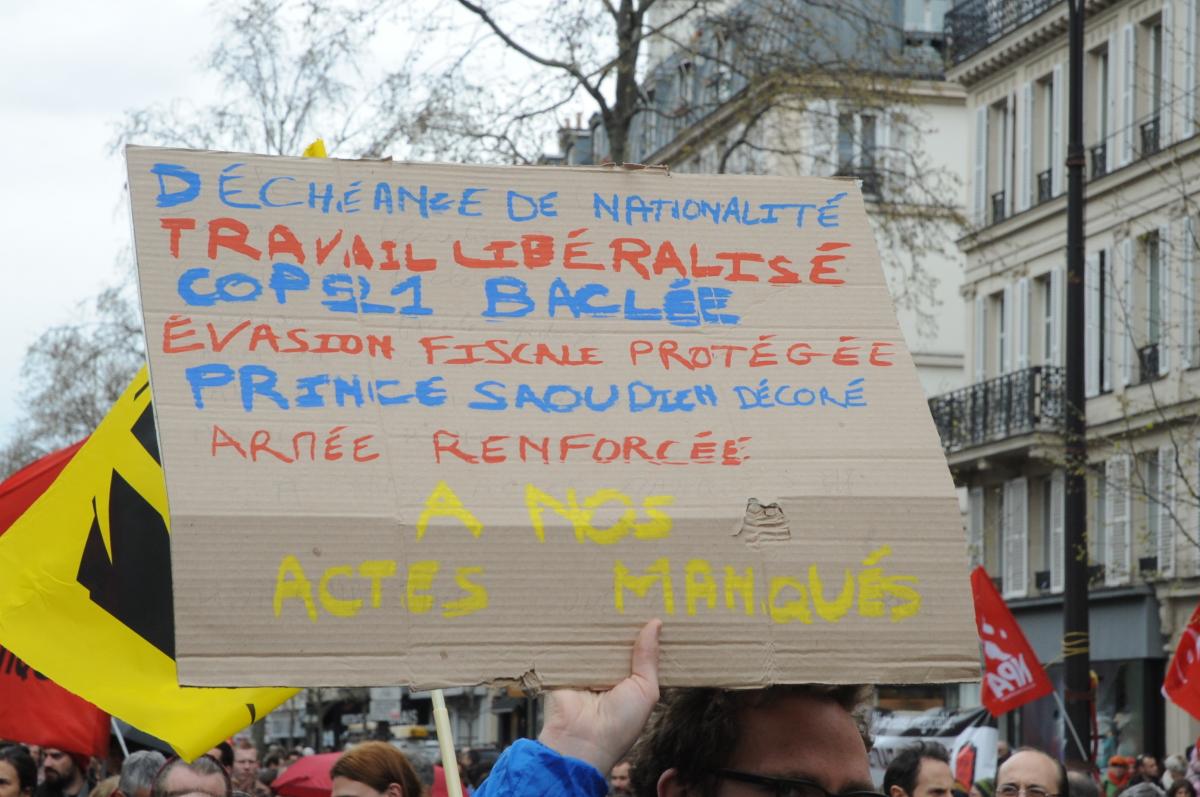 DÉCHÉANCE DE NATIONALITÉ
TRAVAIL LIBÉRALISÉ
COP21 BACLÉE
ÉVASION FISCALE PROTÉGÉE
PRINCE SAOUDIEN DÉCORÉ
ARMÉE RENFORCÉE
A NOS
ACTES MANQUÉS
NPA